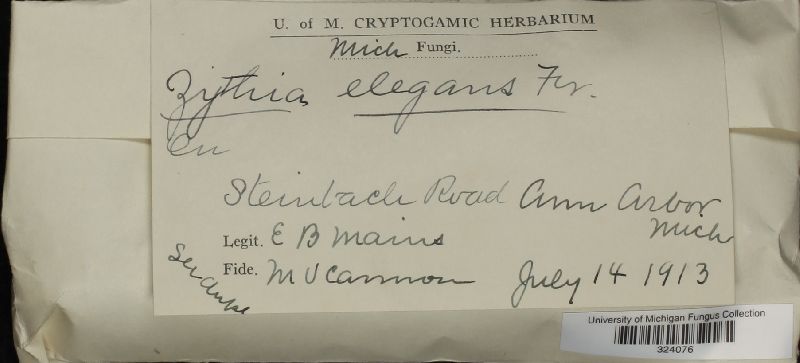 U. of M. CRYPTOGAMIC HERBARIUM
Mich Fungi.
Zythia elegans Fr.
On
Steinbach Road Ann Arbor
Mich
Legit. E B Mains
Fide. M V Cannon July 14 1913
University of Michigan Fungus Collection
324076